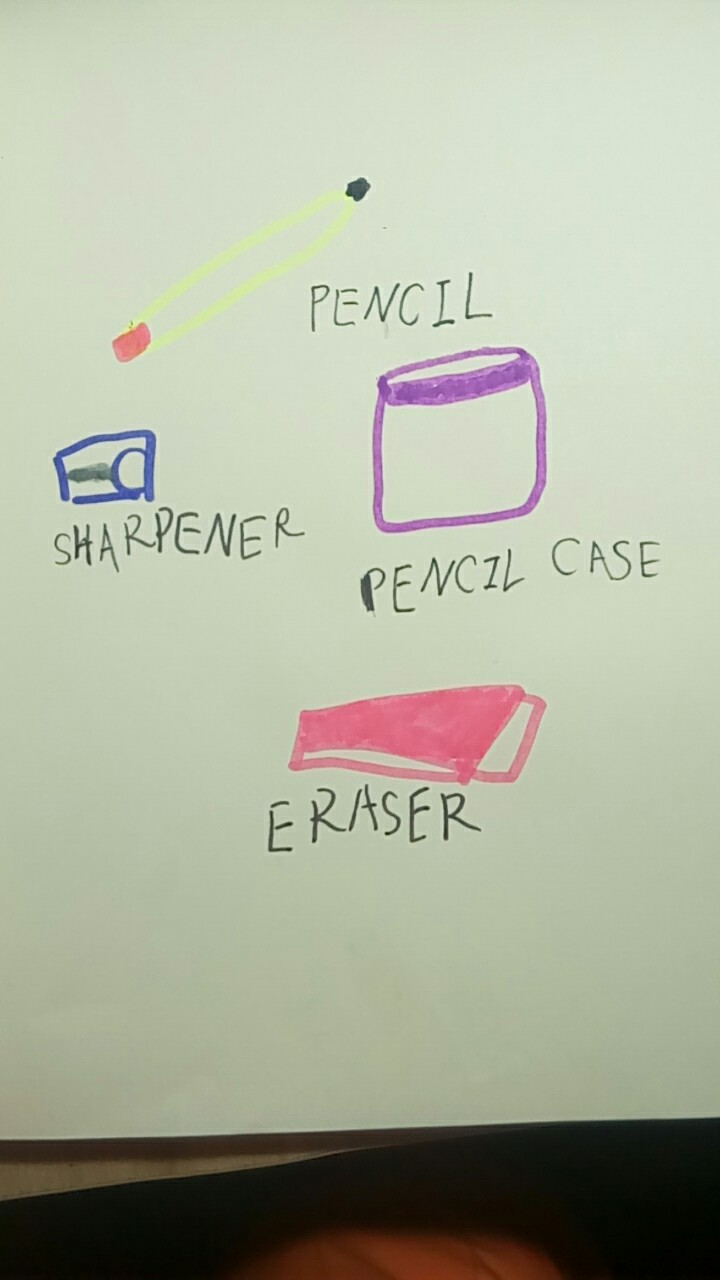 PENCIL
SHARPENER
PENCIL CASE
ERASER